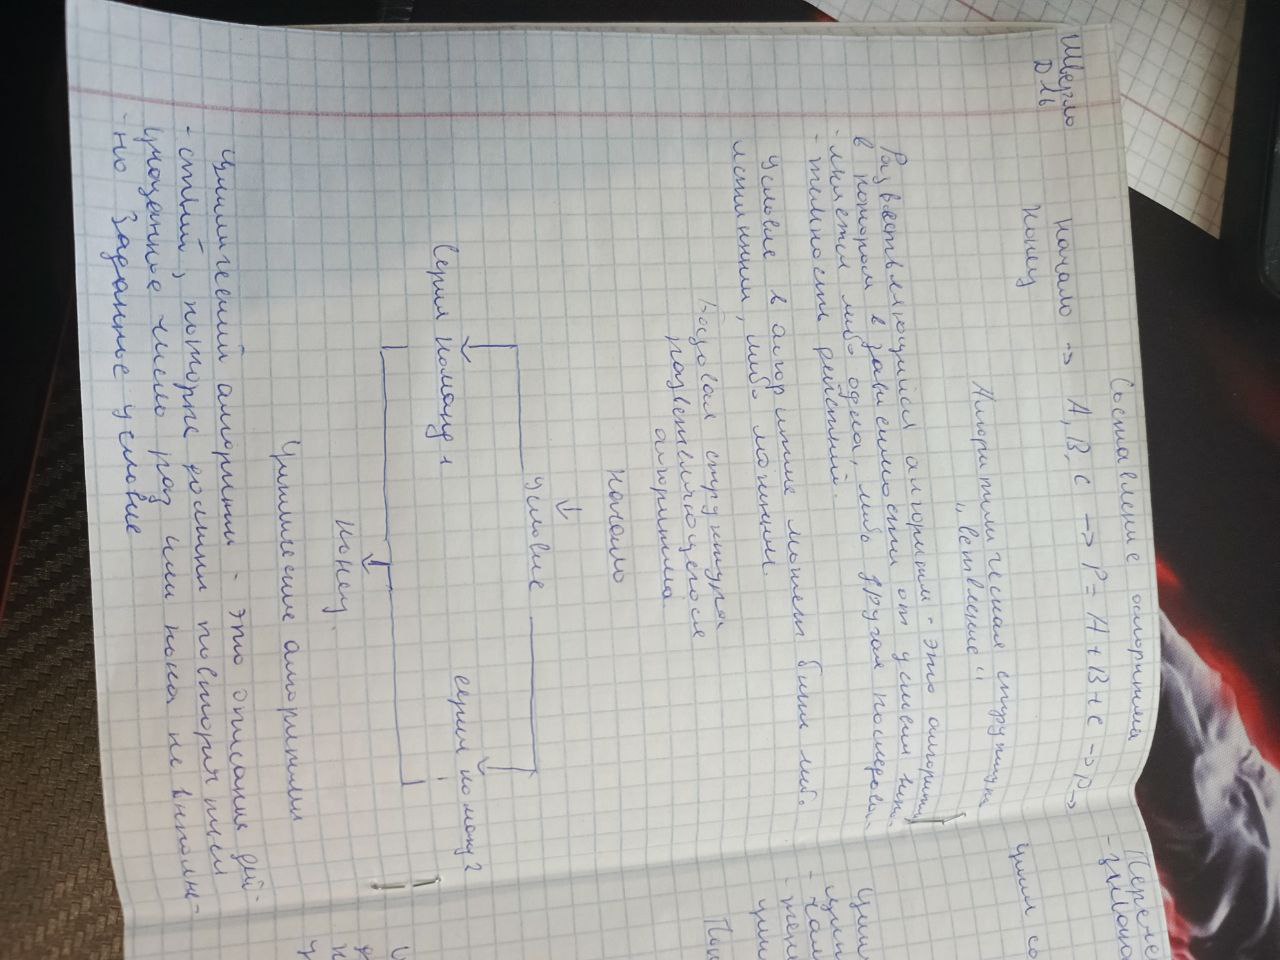 Шверло
Д 16
Составление алгоритма
начало → A, B, C → P = A + B + C → P →
конец
Алгоритмическая структура
„ветвление"
Разветвляющийся алгоритм - это алгоритм
в котором в зависимости от условия выпо
- лняется либо одна, либо другая последова
- тельность действий.
Условие в алгоритме может быть либо
истинным, либо ложным.
Базовая структура
разветвляющегося
алгоритма
Начало
↓
Условие
Серия Команд 1
серия команд 2
Конец.
Циклические алгоритмы
Циклический алгоритм - это описание дей-
- ствий, которые должны повториться
указанное число раз или пока не выполне-
- но заданное условие
Переме
цикл со
Цик